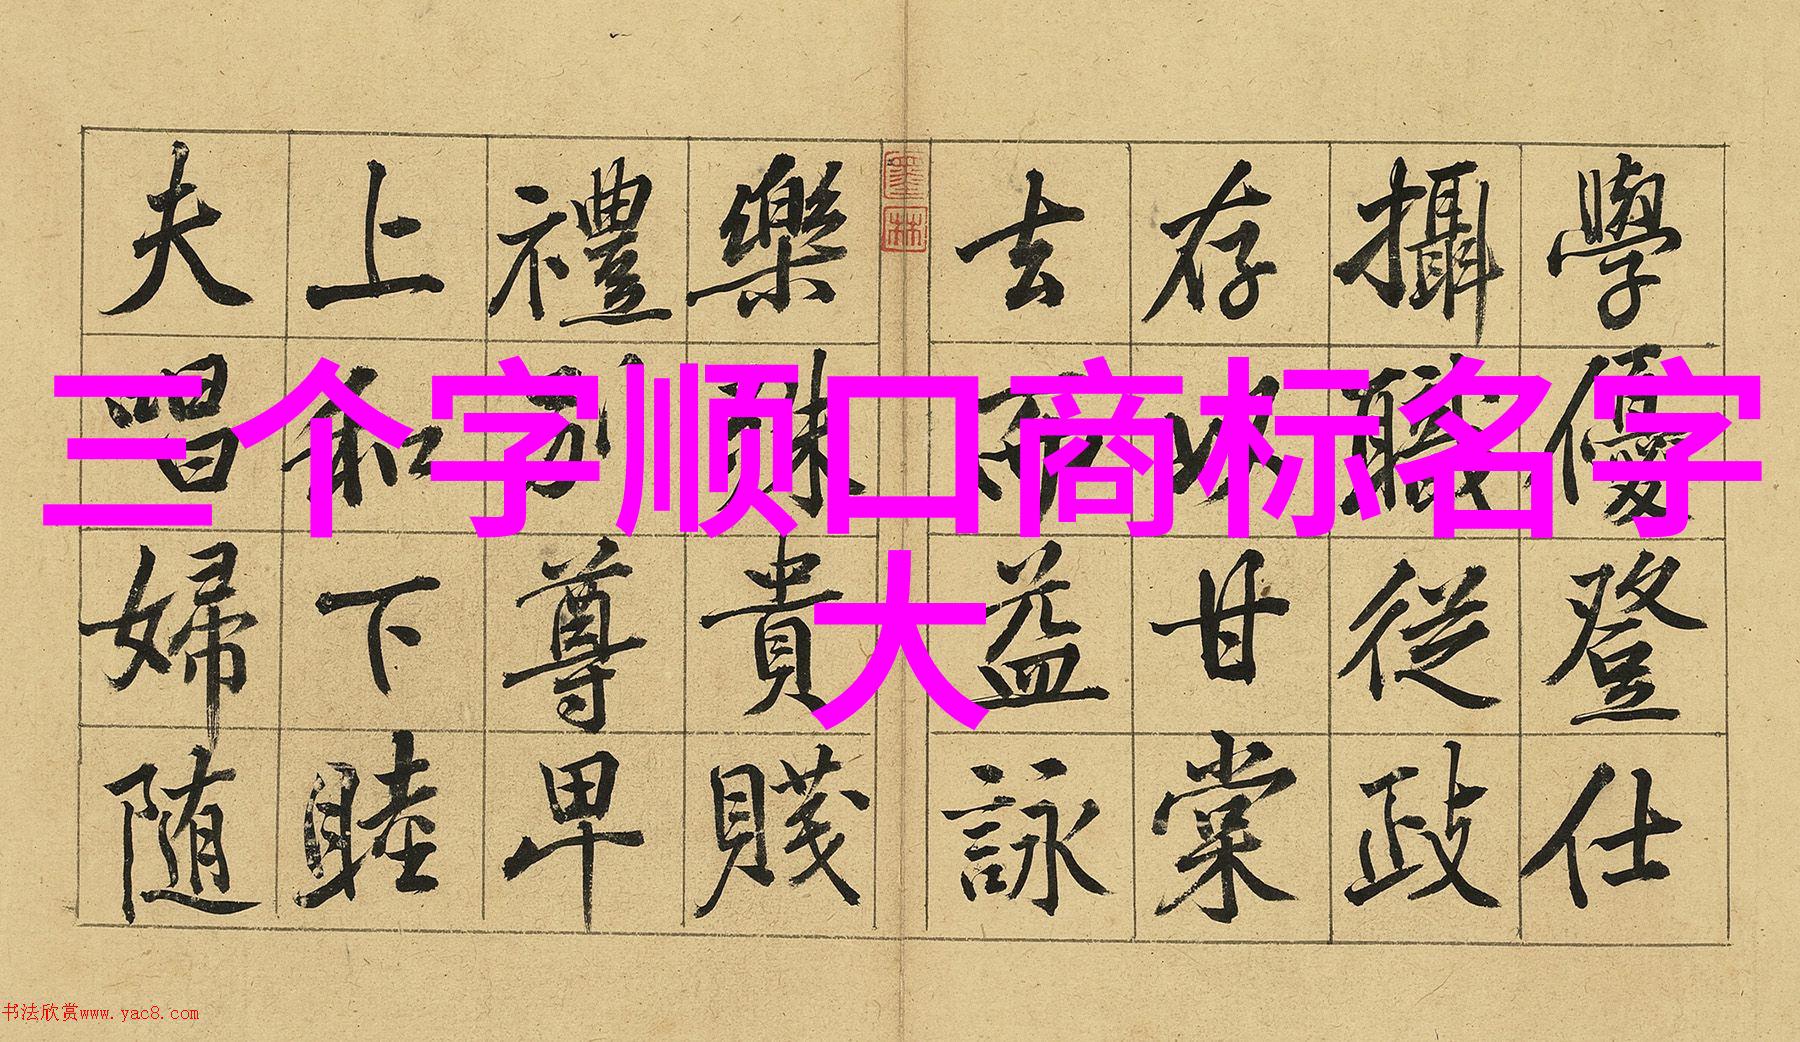 三个字顺口商标名字
大
學優登仕
攝職從政
存以甘棠
去而益詠
墨林
樂殊貴賤
禮別尊卑
上和下睦
夫唱婦随
书法欣赏www.yac8.com